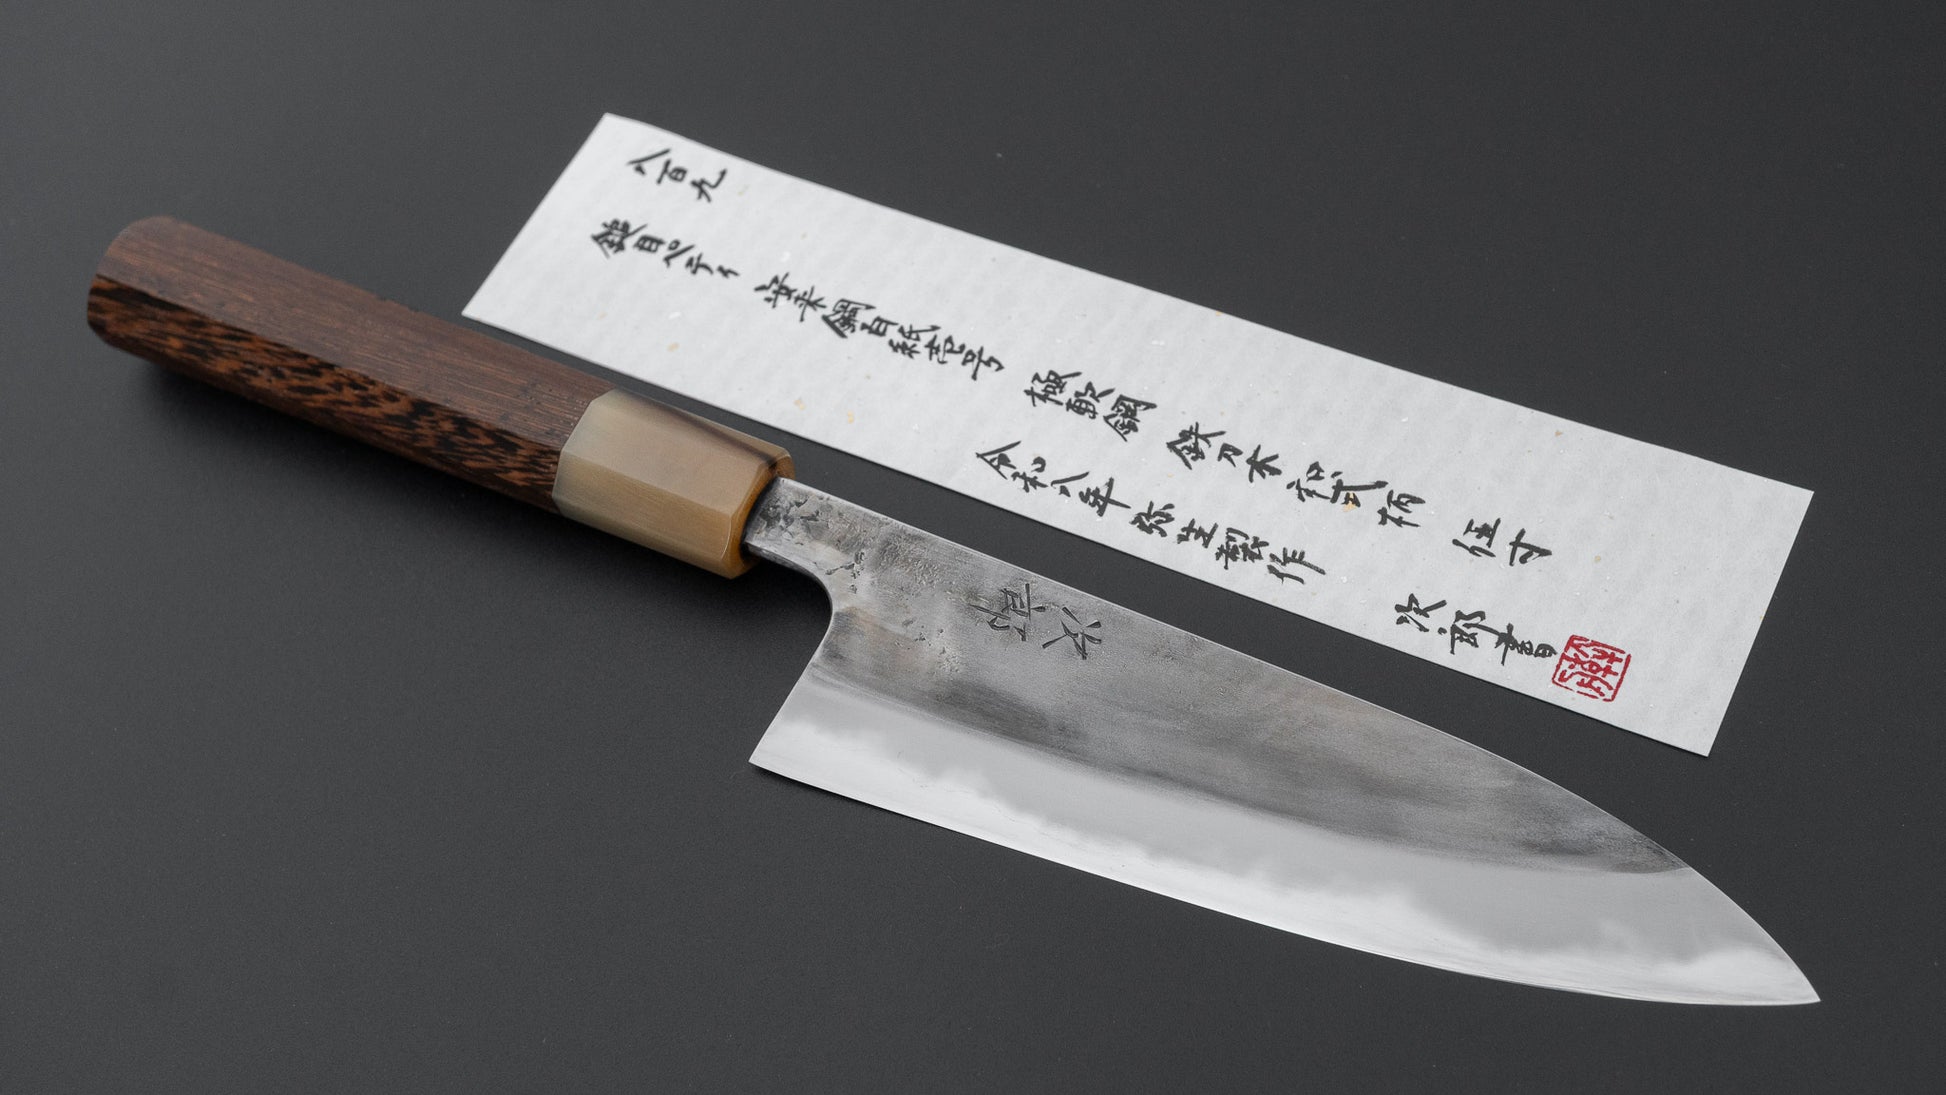 八百九
鎚目ペティ 安来鋼白紙壱号 極軟鋼 鉄刀木和式柄 伍寸
令和八年弥生製作 次郎書
次郎